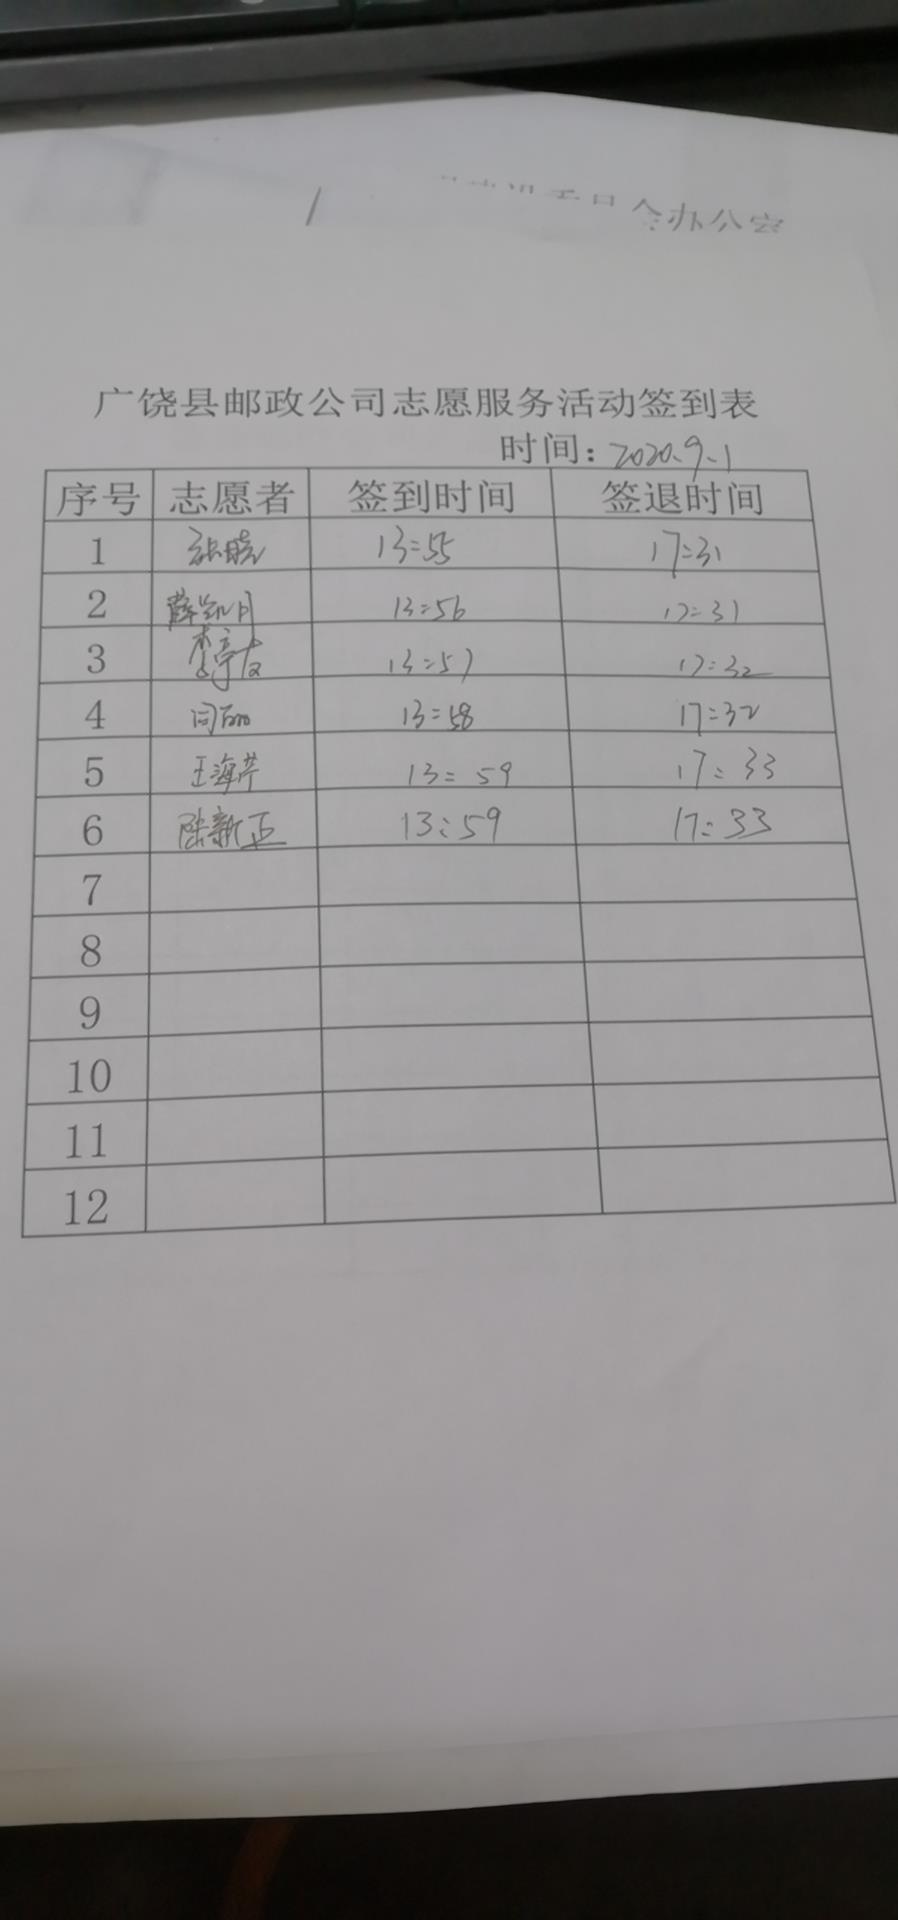 会办公室
广饶县邮政公司志愿服务活动签到表
时间：2020.9.1
序号 志愿者 签到时间 签退时间
1 张晓 13:55 17:31
2 薛凯月 13:56 17:31
3 李亭友 13:57 17:32
4 闫丽 13:58 17:32
5 王海芹 13:59 17:33
6 陈新正 13:59 17:33
7
8
9
10
11
12